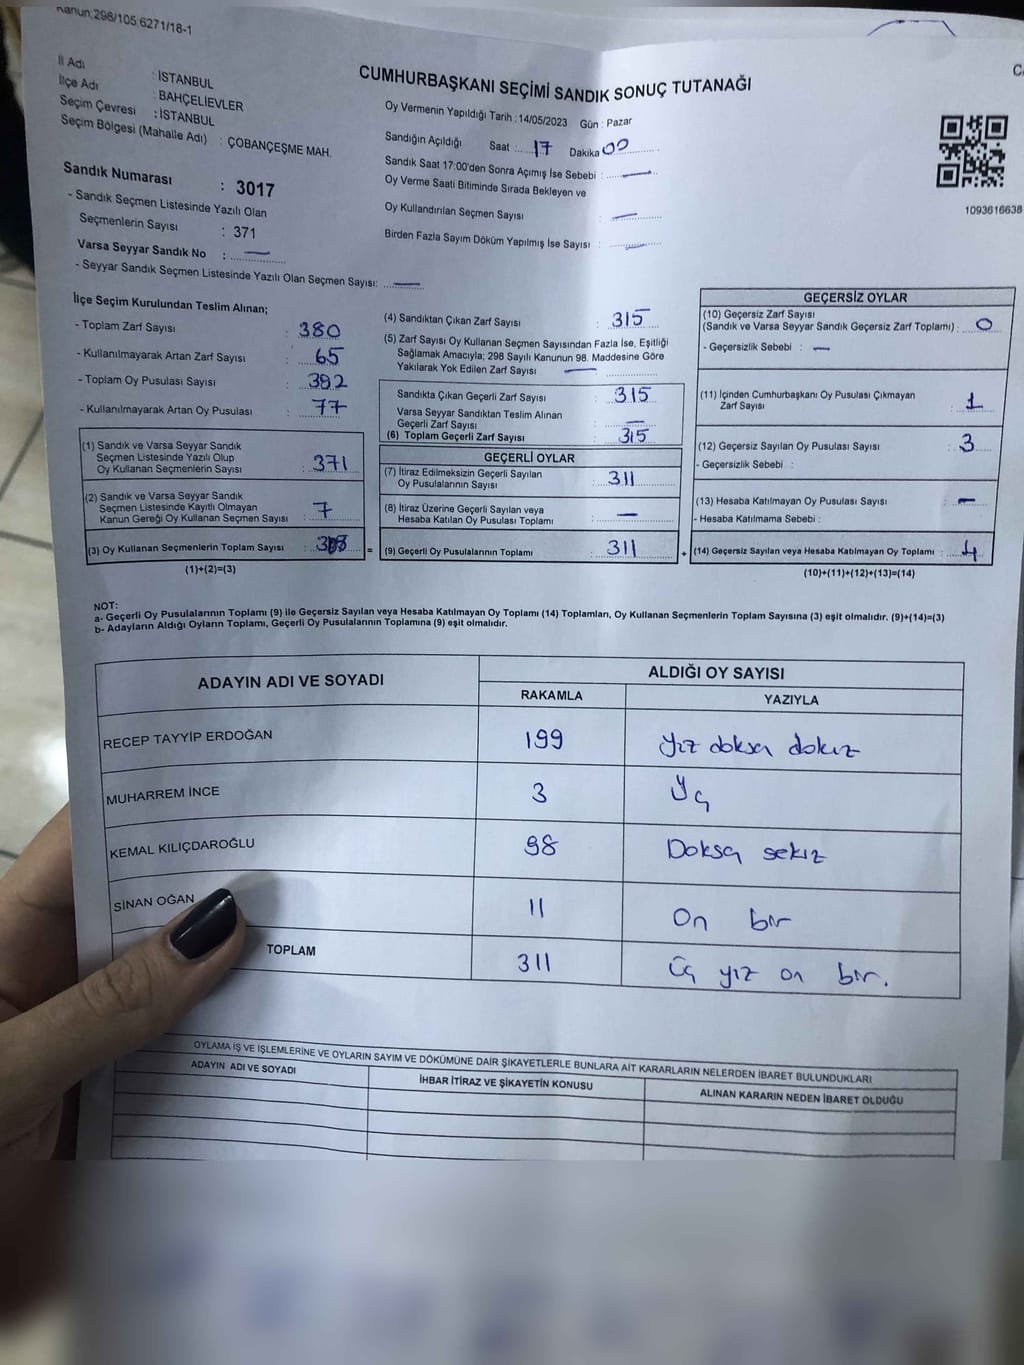 Kanun:298/105:6271/18-1
CUMHURBAŞKANI SEÇİMİ SANDIK SONUÇ TUTANAĞI
İl Adı : İSTANBUL
İlçe Adı : BAHÇELİEVLER
Seçim Çevresi : İSTANBUL
Seçim Bölgesi (Mahalle Adı) : ÇOBANÇEŞME MAH.
Sandık Numarası : 3017
- Sandık Seçmen Listesinde Yazılı Olan
Seçmenlerin Sayısı : 371
Varsa Seyyar Sandık No : —
- Seyyar Sandık Seçmen Listesinde Yazılı Olan Seçmen Sayısı: —
Oy Vermenin Yapıldığı Tarih : 14/05/2023 Gün : Pazar
Sandığın Açıldığı Saat : 17 Dakika 00
Sandık Saat 17:00'den Sonra Açımış İse Sebebi : —
Oy Verme Saati Bitiminde Sırada Bekleyen ve
Oy Kullandırılan Seçmen Sayısı : —
Birden Fazla Sayım Döküm Yapılmış İse Sayısı : —
1093616638
İlçe Seçim Kurulundan Teslim Alınan;
- Toplam Zarf Sayısı : 380
- Kullanılmayarak Artan Zarf Sayısı : 65
- Toplam Oy Pusulası Sayısı : 392
- Kullanılmayarak Artan Oy Pusulası : 77
(1) Sandık ve Varsa Seyyar Sandık
Seçmen Listesinde Yazılı Olup
Oy Kullanan Seçmenlerin Sayısı : 371
(2) Sandık ve Varsa Seyyar Sandık
Seçmen Listesinde Kayıtlı Olmayan
Kanun Gereği Oy Kullanan Seçmen Sayısı : 7
(3) Oy Kullanan Seçmenlerin Toplam Sayısı :
(1)+(2)=(3)
(4) Sandıktan Çıkan Zarf Sayısı : 315
(5) Zarf Sayısı Oy Kullanan Seçmen Sayısından Fazla İse, Eşitliği
Sağlamak Amacıyla; 298 Sayılı Kanunun 98. Maddesine Göre
Yakılarak Yok Edilen Zarf Sayısı : —
Sandıkta Çıkan Geçerli Zarf Sayısı : 315
Varsa Seyyar Sandıktan Teslim Alınan
Geçerli Zarf Sayısı : —
(6) Toplam Geçerli Zarf Sayısı : 315
GEÇERLİ OYLAR
(7) İtiraz Edilmeksizin Geçerli Sayılan
Oy Pusulalarının Sayısı : 311
(8) İtiraz Üzerine Geçerli Sayılan veya
Hesaba Katılan Oy Pusulası Toplamı : —
= (9) Geçerli Oy Pusulalarının Toplamı : 311
GEÇERSİZ OYLAR
(10) Geçersiz Zarf Sayısı
(Sandık ve Varsa Seyyar Sandık Geçersiz Zarf Toplamı) : 0
- Geçersizlik Sebebi : —
(11) İçinden Cumhurbaşkanı Oy Pusulası Çıkmayan
Zarf Sayısı : 1
(12) Geçersiz Sayılan Oy Pusulası Sayısı : 3
- Geçersizlik Sebebi :
(13) Hesaba Katılmayan Oy Pusulası Sayısı : —
- Hesaba Katılmama Sebebi :
+ (14) Geçersiz Sayılan veya Hesaba Katılmayan Oy Toplamı : 4
(10)+(11)+(12)+(13)=(14)
NOT:
a- Geçerli Oy Pusulalarının Toplamı (9) ile Geçersiz Sayılan veya Hesaba Katılmayan Oy Toplamı (14) Toplamları, Oy Kullanan Seçmenlerin Toplam Sayısına (3) eşit olmalıdır. (9)+(14)=(3)
b- Adayların Aldığı Oyların Toplamı, Geçerli Oy Pusulalarının Toplamına (9) eşit olmalıdır.
ADAYIN ADI VE SOYADI ALDIĞI OY SAYISI
RAKAMLA YAZIYLA
RECEP TAYYİP ERDOĞAN 199 yüz doksan dokuz
MUHARREM İNCE 3 Üç
KEMAL KILIÇDAROĞLU 98 Doksan sekiz
SİNAN OĞAN 11 On bir
TOPLAM 311 Üç yüz on bir.
OYLAMA İŞ VE İŞLEMLERİNE VE OYLARIN SAYIM VE DÖKÜMÜNE DAİR ŞİKAYETLERLE BUNLARA AİT KARARLARIN NELERDEN İBARET BULUNDUKLARI
ADAYIN ADI VE SOYADI İHBAR İTİRAZ VE ŞİKAYETİN KONUSU ALINAN KARARIN NEDEN İBARET OLDUĞU